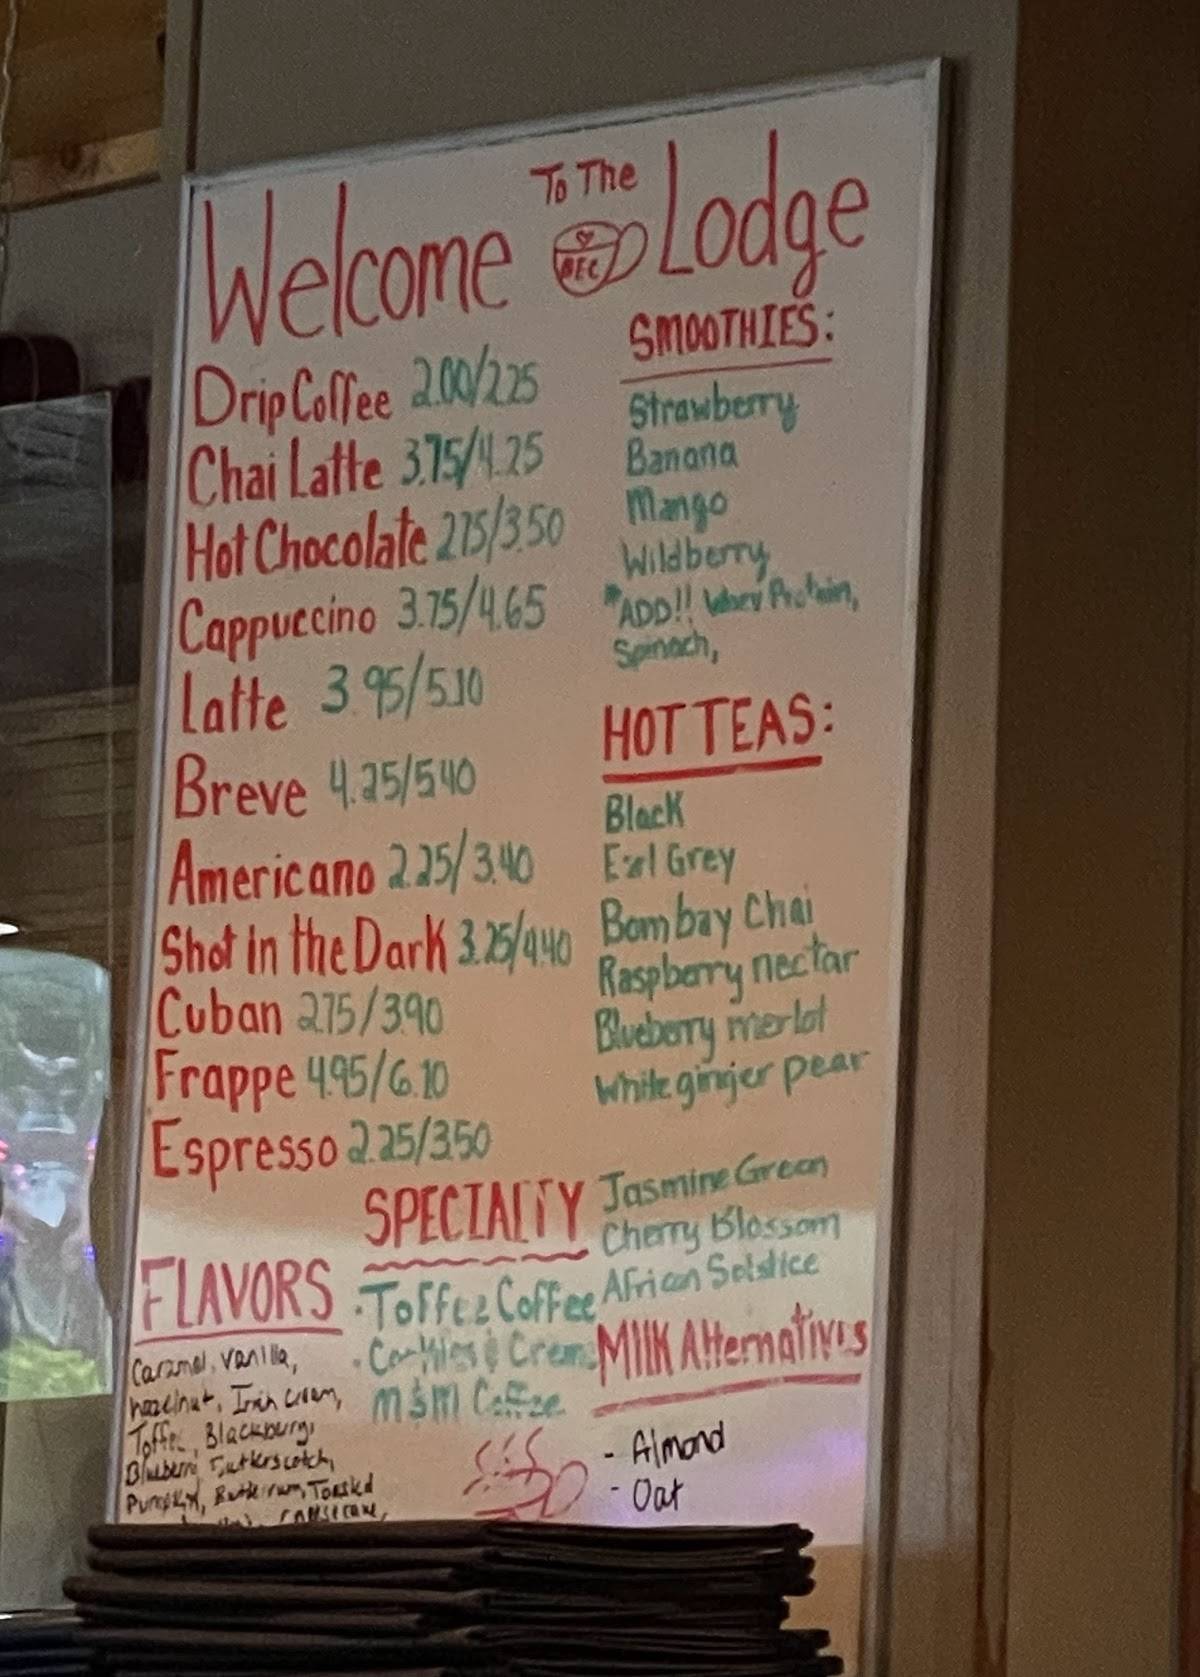 Welcome To The Lodge
BEC
Drip Coffee 2.00/2.25
Chai Latte 3.75/4.25
Hot Chocolate 2.75/3.50
Cappuccino 3.75/4.65
Latte 3.95/5.10
Breve 4.25/5.40
Americano 2.25/3.40
Shot in the Dark 3.25/4.40
Cuban 2.75/3.90
Frappe 4.95/6.10
Espresso 2.25/3.50
SMOOTHIES:
Strawberry
Banana
Mango
Wildberry
*ADD!! Whey Protein,
Spinach,
HOT TEAS:
Black
Earl Grey
Bombay Chai
Raspberry nectar
Blueberry merlot
White ginger pear
Jasmine Green
Cherry Blossom
African Solstice
SPECIALTY
· Toffee Coffee
· Cookies & Creme
M&M Coffee
FLAVORS
Caramel, vanilla,
hazelnut, Irish cream,
Toffee, Blackberry,
Blueberry, Butterscotch,
Pumpkin, Butterrum, Toasted
MIlk Alternatives
- Almond
- Oat